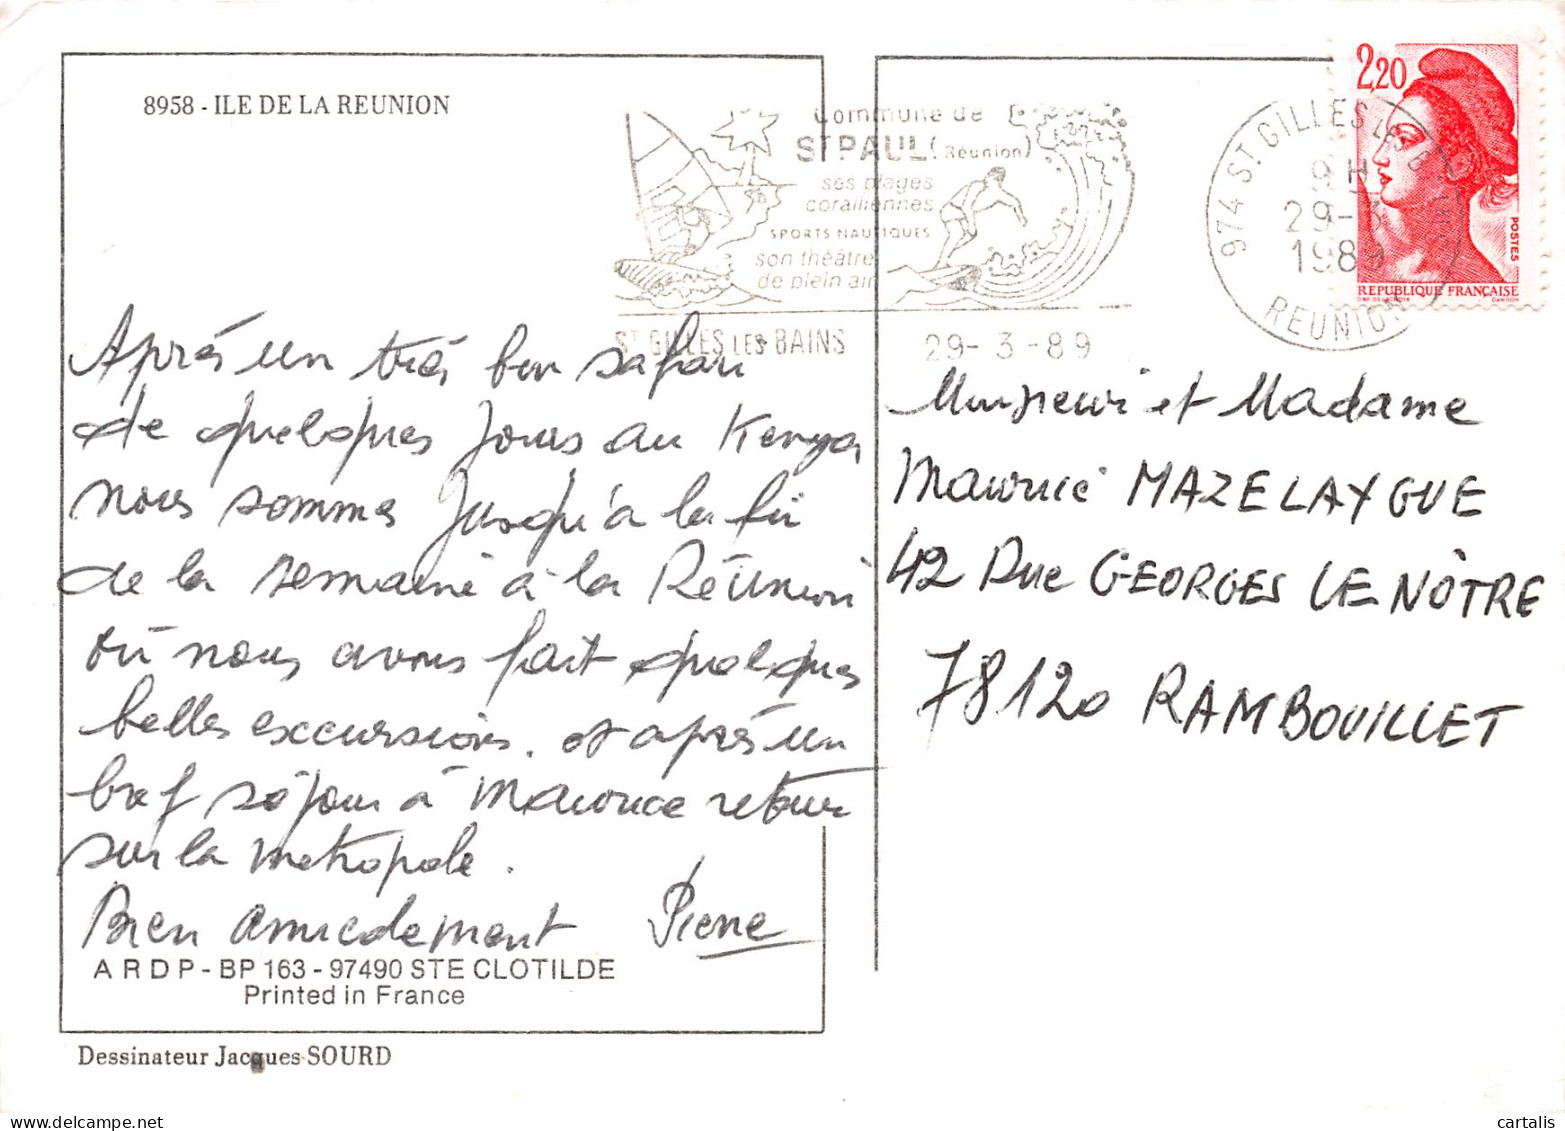 8958 - ILE DE LA REUNION
Commune de
ST PAUL (Réunion)
ses plages
coralliennes
SPORTS NAUTIQUES
son théâtre
de plein air
ST GILLES LES BAINS
29-3-89
974 ST GILLES LES BAINS
9H
29-3
1989
REUNION
2,20
POSTES
REPUBLIQUE FRANÇAISE
DAP DELACROIX GANDON
Après un très bon safari
de quelques jours au Kenya,
nous sommes jusqu'à la fin
de la semaine à la Réunion
où nous avons fait quelques
belles excursions. et après un
bref séjour à Maurice retour
sur la métropole.
Bien amicalement Pierre
A R D P - BP 163 - 97490 STE CLOTILDE
Printed in France
Dessinateur Jacques SOURD
Monsieur et Madame
Maurice MAZELAYGUE
42 Rue GEORGES LENÔTRE
78120 RAMBOUILLET
cartalis